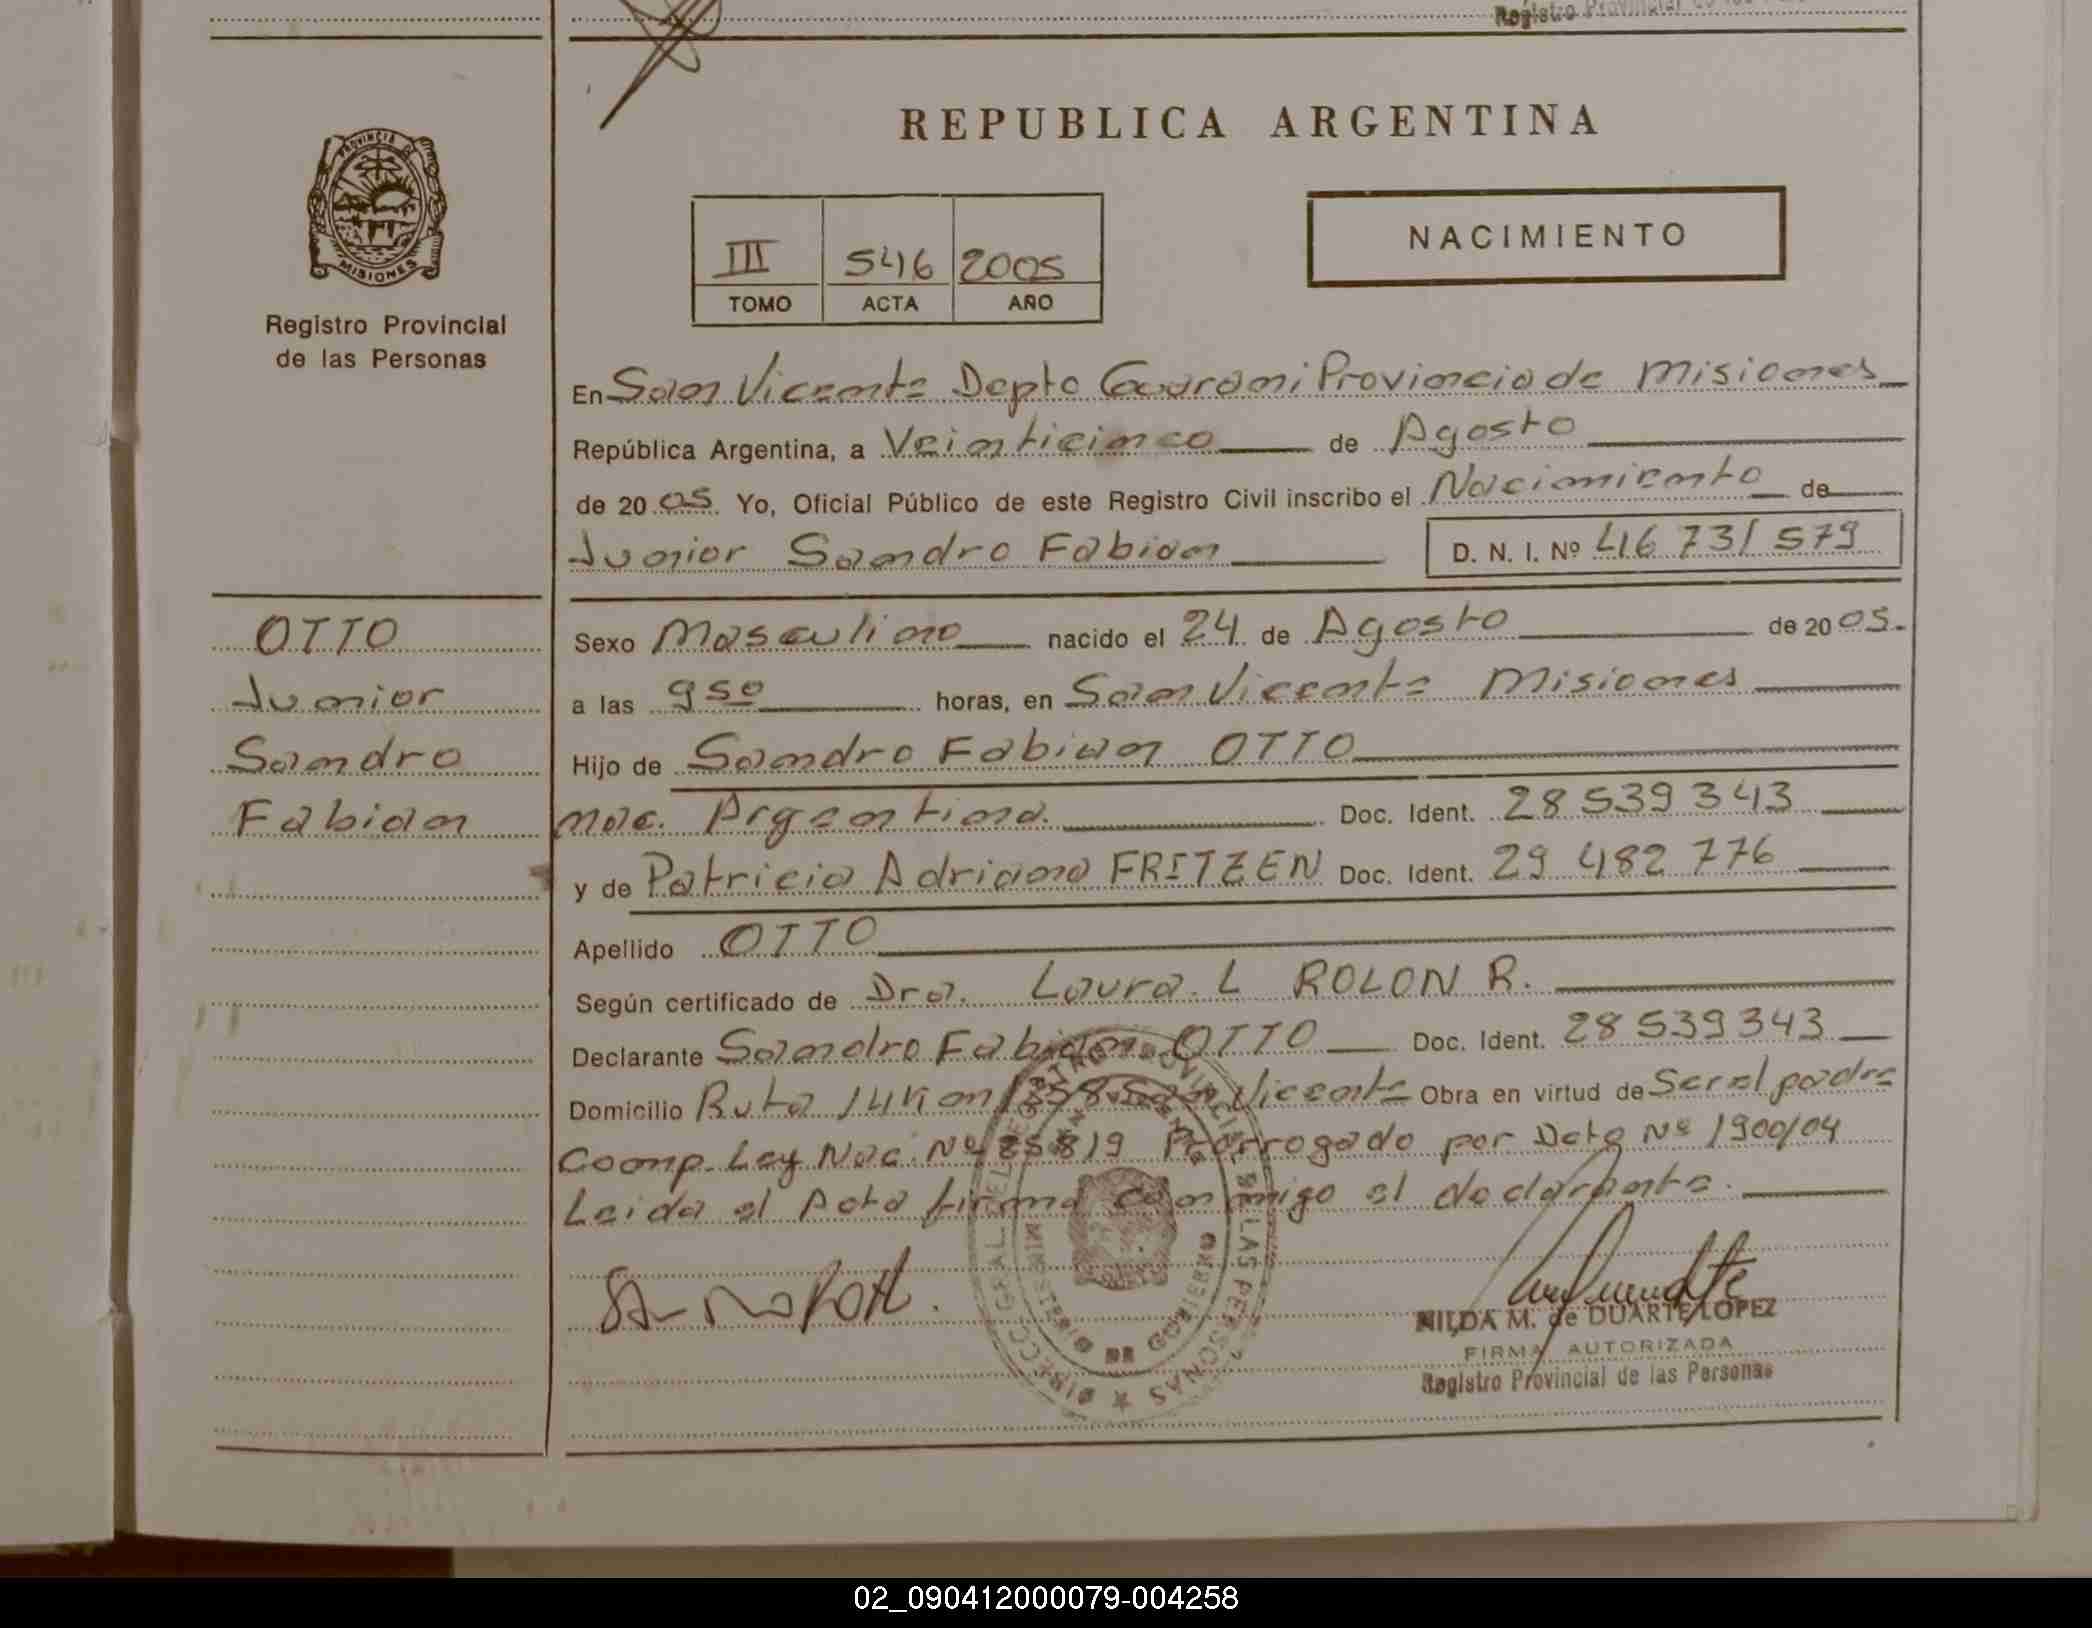 Registro Provincial de las
REPUBLICA ARGENTINA
PROVINCIA DE
MISIONES
Registro Provincial
de las Personas
III 546 2005
TOMO ACTA AÑO
NACIMIENTO
En San Vicente Depto Guarani Provincia de Misiones
República Argentina, a Veinticinco de Agosto
de 2005 Yo, Oficial Público de este Registro Civil inscribo el Nacimiento de
Junior Sandro Fabian D. N. I. Nº 46 731 579
OTTO
Junior
Sandro
Fabian
Sexo Masculino nacido el 24 de Agosto de 2005.
a las 9 50 horas, en San Vicente Misiones
Hijo de Sandro Fabian OTTO
nac. Argentina. Doc. Ident. 28 539 343
y de Patricia Adriana FRITZEN Doc. Ident. 29 482 776
Apellido OTTO
Según certificado de Dra. Laura. L ROLON R.
Declarante Sandro Fabian OTTO Doc. Ident. 28 539 343
Domicilio Ruta 14 Km 1358 San Vicente Obra en virtud de Ser el padre
Comp. Ley Nac. Nº 25819 Prorrogado por Dcto Nº 1900/04
Leida el Acta firma conmigo el declarante.
DIRECC. GRAL. DEL REGISTRO PROVINCIAL DE LAS PERSONAS
MINISTERIO DE GOBIERNO
HILDA M. de DUARTE LOPEZ
FIRMA AUTORIZADA
Registro Provincial de las Personas
02_090412000079-004258